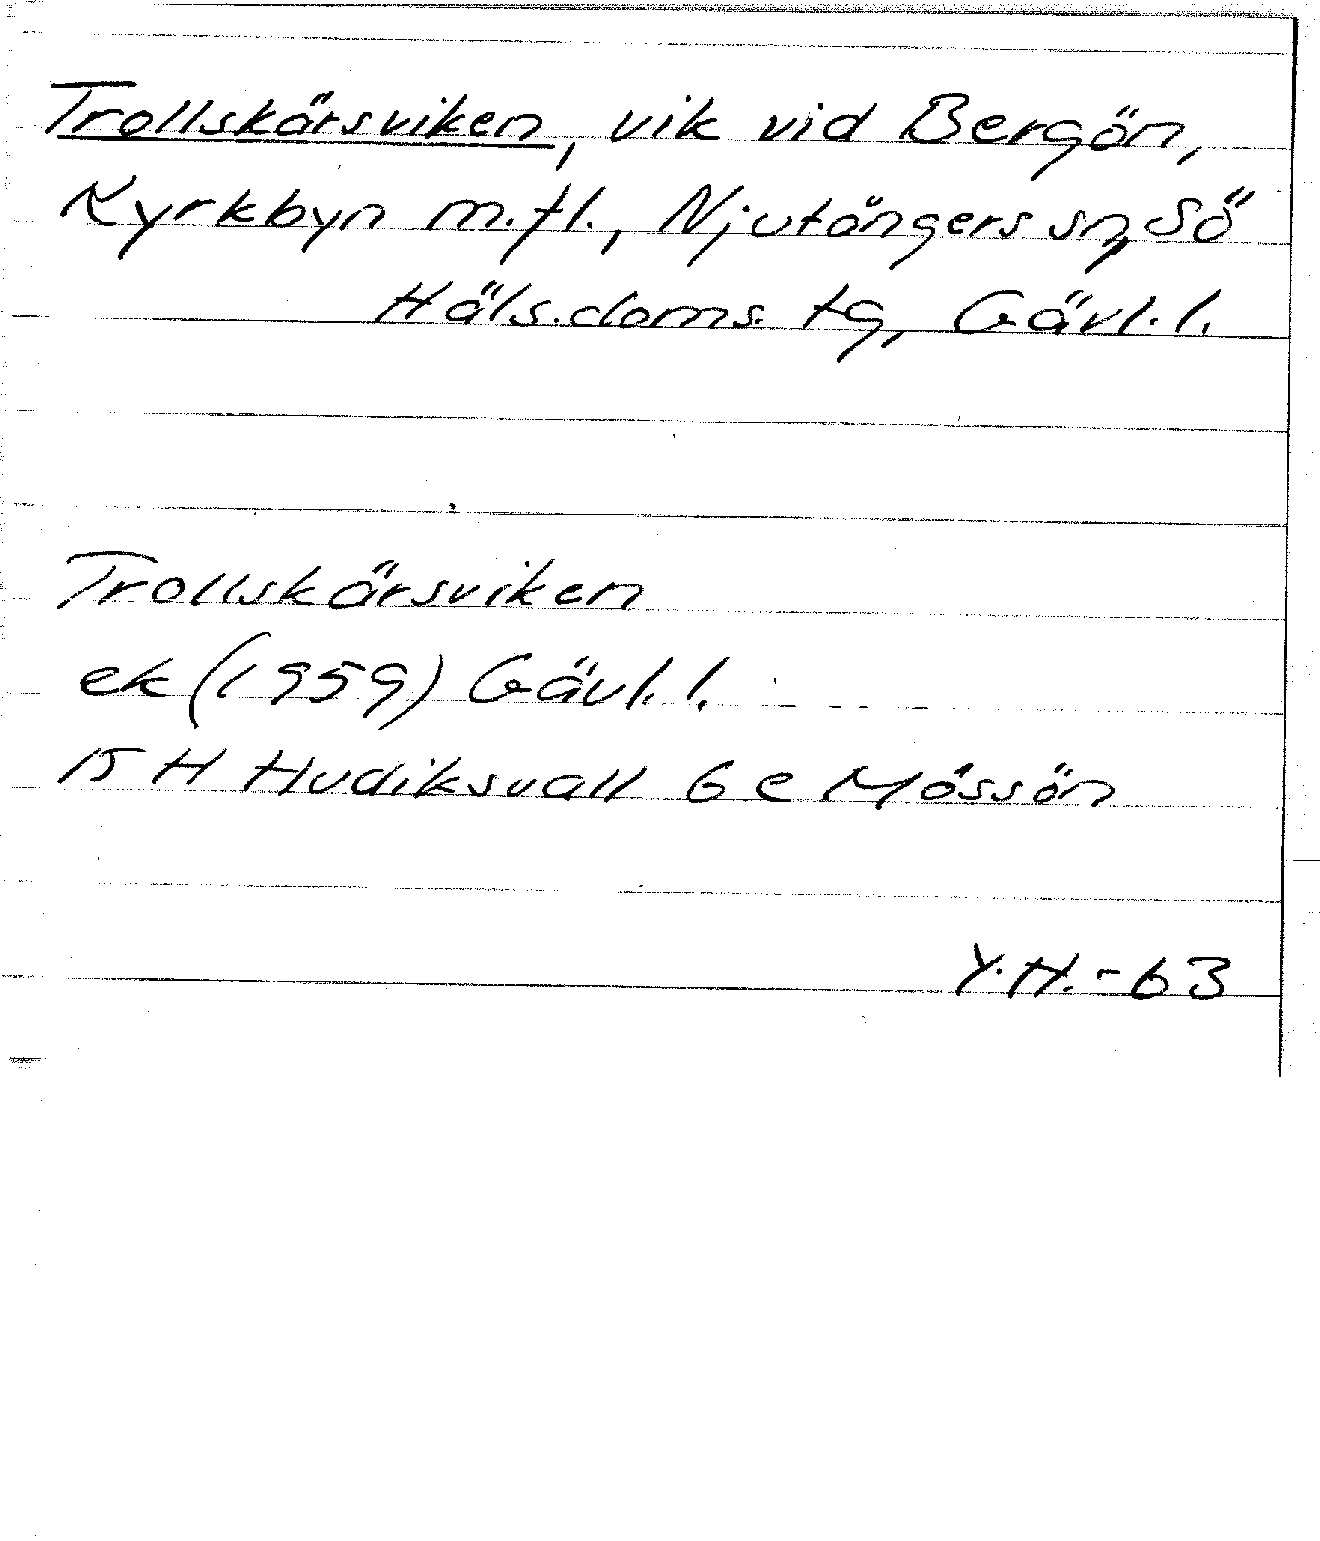 Trollskärsviken, vik vid Bergön,
Kyrkbyn m.fl., Njutångers sn, Sö
Häls. doms. tg, Gävl. l.
Trollskärsviken
ek (1959) Gävl. l.
15 H Hudiksvall 6 e Mössön
Y.H.-63